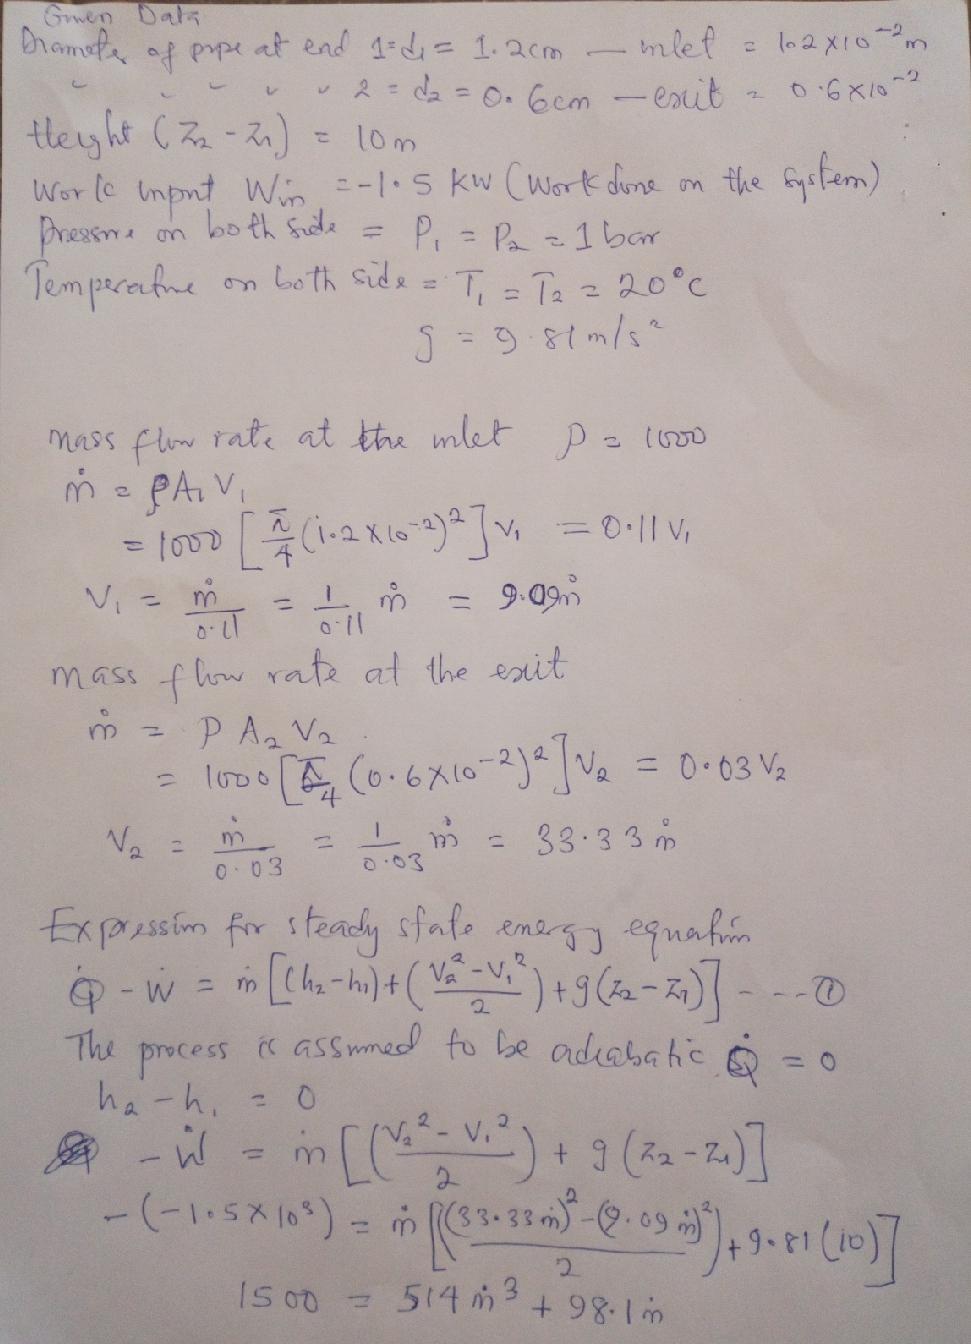 Given Data
Diameter of pipe at end 1 = d₁ = 1.2cm — inlet = 1.2x10⁻²m
" " " " " 2 = d₂ = 0.6cm — exit = 0.6x10⁻²
Height (Z₂ - Z₁) = 10m
Work Input Win = -1.5 kW (Work done on the system)
Pressure on both side = P₁ = P₂ = 1 bar
Temperature on both side = T₁ = T₂ = 20°C
g = 9.81 m/s²
mass flow rate at the inlet ρ = 1000
ṁ = ρA₁V₁
= 1000 [π/4 (1.2x10⁻²)²] V₁ = 0.11 V₁
V₁ = ṁ/0.11 = 1/0.11 ṁ = 9.09ṁ
mass flow rate at the exit
ṁ = ρ A₂ V₂
= 1000 [π/4 (0.6x10⁻²)²] V₂ = 0.03 V₂
V₂ = ṁ/0.03 = 1/0.03 ṁ = 33.33 ṁ
Expression for steady state energy equation
Q̇ - Ẇ = ṁ [(h₂-h₁) + ((V₂² - V₁²)/2) + g(Z₂ - Z₁)] ---- ①
The process is assumed to be adiabatic Q̇ = 0
h₂ - h₁ = 0
- Ẇ = ṁ [((V₂² - V₁²)/2) + g (Z₂ - Z₁)]
- (-1.5x10³) = ṁ [((33.33ṁ)² - (9.09ṁ)²)/2) + 9.81(10)]
1500 = 514 ṁ³ + 98.1ṁ